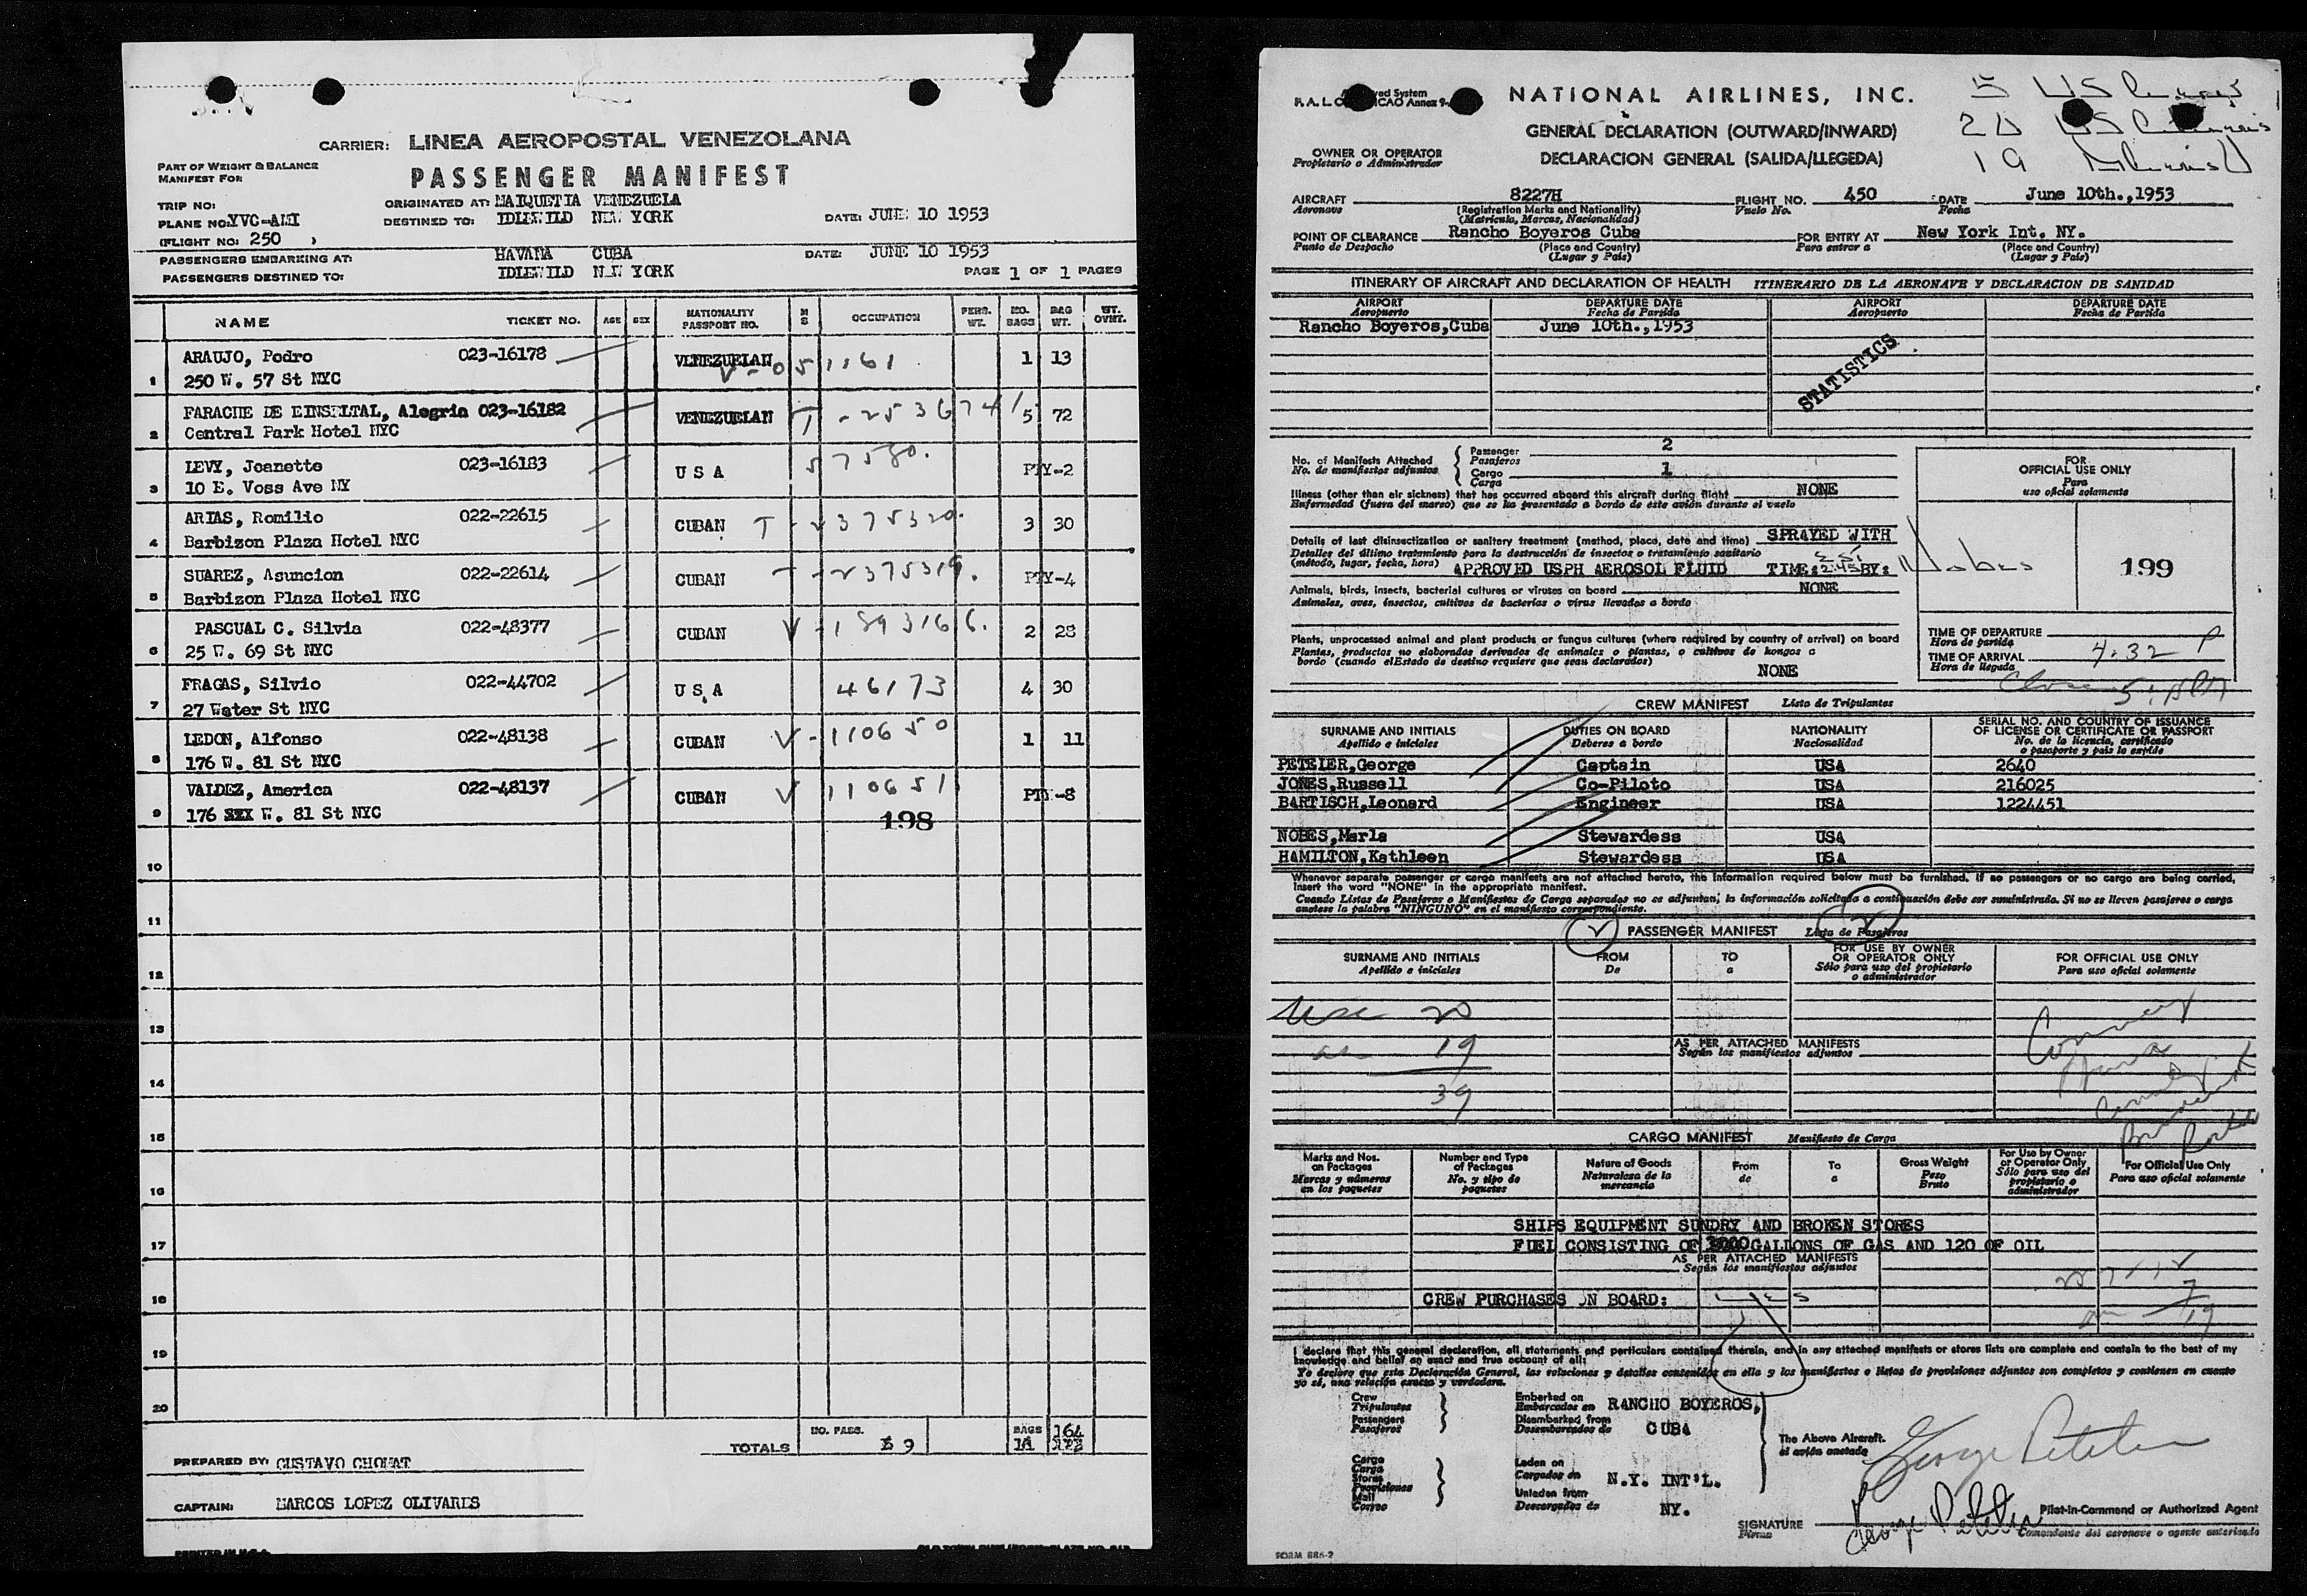 CARRIER: LINEA AEROPOSTAL VENEZOLANA
PART OF WEIGHT & BALANCE
MANIFEST FOR
PASSENGER MANIFEST
TRIP NO:
ORIGINATED AT: MAIQUETIA VENEZUELA
PLANE NO: YVC-AMI
DESTINED TO: IDLEWILD NEW YORK
DATE: JUNE 10 1953
(FLIGHT NO: 250 )
PASSENGERS EMBARKING AT: HAVANA CUBA DATE: JUNE 10 1953
PASSENGERS DESTINED TO: IDLEWILD NEW YORK PAGE 1 OF 1 PAGES
NAME TICKET NO. AGE SEX NATIONALITY PASSPORT NO. M S OCCUPATION PERS. WT. NO. BAGS BAG WT. WT. OVNT.
1 ARAUJO, Pedro 023-16178 VENEZUELAN V-051161 1 13
250 W. 57 St NYC
2 FARACHE DE EINSELTAL, Alegria 023-16182 VENEZUELAN T-253674 5 72
Central Park Hotel NYC
3 LEVY, Jeanette 023-16183 U S A 57580. PTY-2
10 E. Voss Ave NY
4 ARIAS, Romilio 022-22615 CUBAN T-2375320. 3 30
Barbizon Plaza Hotel NYC
5 SUAREZ, Asuncion 022-22614 CUBAN T-2375319. PTY-4
Barbizon Plaza Hotel NYC
6 PASCUAL C. Silvia 022-48377 CUBAN V-1893166. 2 28
25 W. 69 St NYC
7 FRAGAS, Silvio 022-44702 U S A 46173 4 30
27 Water St NYC
8 LEDON, Alfonso 022-48138 CUBAN V-110650 1 11
176 W. 81 St NYC
9 VALDEZ, America 022-48137 CUBAN V 110651. PTY-8
176 W. 81 St NYC
198
10
11
12
13
14
15
16
17
18
19
20
TOTALS NO. PASS. 9 BAGS 164
PREPARED BY: GUSTAVO CHOMAT
CAPTAIN: MARCOS LOPEZ OLIVARES
PRINTED IN U.S.A.
NATIONAL AIRLINES, INC.
5 US
20 US
19
GENERAL DECLARATION (OUTWARD/INWARD)
OWNER OR OPERATOR
Propietario o Administrador
DECLARACION GENERAL (SALIDA/LLEGEDA)
AIRCRAFT 8227H FLIGHT NO. 450 DATE June 10th.,1953
Aeronave (Registration Marks and Nationality) Vuelo No. Fecha
(Matricula, Marcas, Nacionalidad)
POINT OF CLEARANCE Rancho Boyeros Cuba FOR ENTRY AT New York Int. NY.
Punto de Despacho (Place and Country) Para entrar a (Place and Country)
(Lugar y Pais) (Lugar y Pais)
ITINERARY OF AIRCRAFT AND DECLARATION OF HEALTH ITINERARIO DE LA AERONAVE Y DECLARACION DE SANIDAD
AIRPORT DEPARTURE DATE AIRPORT DEPARTURE DATE
Aeropuerto Fecha de Partida Aeropuerto Fecha de Partida
Rancho Boyeros,Cuba June 10th.,1953
STATISTICS
No. of Manifests Attached Passenger 2
No. de manifiestos adjuntos Pasajeros
Cargo 1
Carga
FOR
OFFICIAL USE ONLY
Para
uso oficial solamente
Illness (other than air sickness) that has occurred aboard this aircraft during flight NONE
Enfermedad (fuera del mareo) que se ha presentado a bordo de este avión durante el vuelo
Details of last disinsectization or sanitary treatment (method, place, date and time) SPRAYED WITH
Detalles del último tratamiento para la destrucción de insectos o tratamiento sanitario
(método, lugar, fecha, hora) APPROVED USPH AEROSOL FLUID TIME: BY: Nobes
199
Animals, birds, insects, bacterial cultures or viruses on board NONE
Animales, aves, insectos, cultivos de bacterias o virus llevados a bordo
Plants, unprocessed animal and plant products or fungus cultures (where required by country of arrival) on board
Plantas, productos no elaborados derivados de animales o plantas, o cultivos de hongos a
bordo (cuando elEstado de destino requiere que sean declarados)
NONE
TIME OF DEPARTURE
Hora de partida
TIME OF ARRIVAL 4:32 P
Hora de llegada
CREW MANIFEST Lista de Tripulantes
SURNAME AND INITIALS DUTIES ON BOARD NATIONALITY SERIAL NO. AND COUNTRY OF ISSUANCE OF LICENSE OR CERTIFICATE OR PASSPORT
Apellido e iniciales Deberes a bordo Nacionalidad No. de la licencia, certificado o pasaporte y pais lo expide
PETELER,George Captain USA 2640
JONES,Russell Co-Piloto USA 216025
BARTISCH,Leonard Engineer USA 1224451
NOBES,Marla Stewardess USA
HAMILTON,Kathleen Stewardess USA
Whenever separate passenger or cargo manifests are not attached hereto, the information required below must be furnished. If no passengers or no cargo are being carried,
insert the word "NONE" in the appropriate manifest.
Cuando Listas de Pasajeros o Manifiestos de Carga separados no se adjuntan, la información solicitada a continuación debe ser suministrada. Si no se lleven pasajeros o carga
anotese la palabra "NINGUNO" en el manifiesto correspondiente.
PASSENGER MANIFEST Lista de Pasajeros
SURNAME AND INITIALS FROM TO FOR USE BY OWNER OR OPERATOR ONLY FOR OFFICIAL USE ONLY
Apellido e iniciales De a Sólo para uso del propietario o administrador Para uso oficial solamente
20
19
39
AS PER ATTACHED MANIFESTS
Según los manifiestos adjuntos
CARGO MANIFEST Manifiesto de Carga
Marks and Nos. on Packages Number and Type of Packages Nature of Goods From To Gross Weight For Use by Owner or Operator Only For Official Use Only
Marcas y números en los paquetes No. y tipo de paquetes Naturaleza de la mercancia de a Peso Bruto Sólo para uso del propietario o administrador Para uso oficial solamente
SHIPS EQUIPMENT SUNDRY AND BROKEN STORES
FUEL CONSISTING OF 3000 GALLONS OF GAS AND 120 OF OIL
AS PER ATTACHED MANIFESTS
Según los manifiestos adjuntos
CREW PURCHASES ON BOARD: YES
I declare that this general declaration, all statements and particulars contained therein, and in any attached manifests or stores lists are complete and contain to the best of my
knowledge and belief an exact and true account of all:
Yo declaro que esta Declaración General, las relaciones y detalles contenidos en ella y los manifiestos o listas de provisiones adjuntos son completos y contienen en cuanto
yo sé, una relación exacta y verdadera.
Crew Embarked on
Tripulantes Embarcados en RANCHO BOYEROS,
Passengers Disembarked from
Pasajeros Desembarcados de CUBA
The Above Aircraft.
el avión anotado
Cargo Laden on
Carga Cargados en N.Y. INT'L.
Stores
Provisiones Unladen from
Mail Descargados de NY.
Correo
George Peteler
Pilot-in-Command or Authorized Agent
SIGNATURE George Peteler
Firma Comandante del aeronave o agente autorizado
FORM 886-2